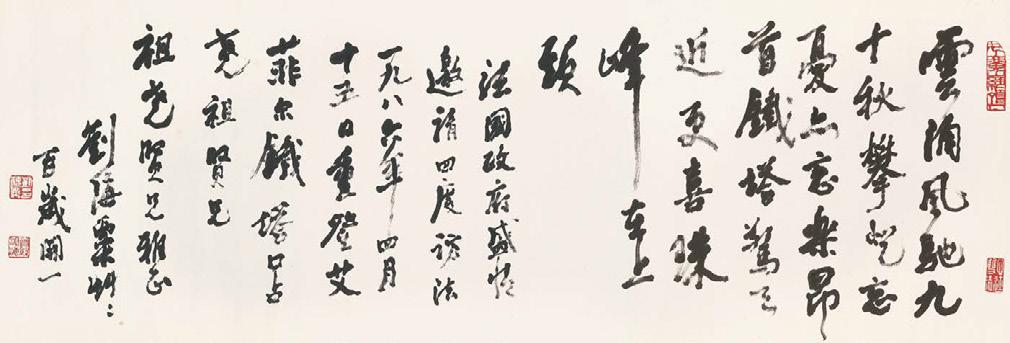 雲涌風馳九
十秋攀登忘
憂亦忘樂昂
首鐵塔驚天
近更喜珠
峰在上
頭
法國政府盛情
邀請四度訪法
一九八六年四月
十五日重登艾
菲尔鐵塔口占
尧祖賢兄
祖尧賢兄雅正
劉海粟
百歲開一